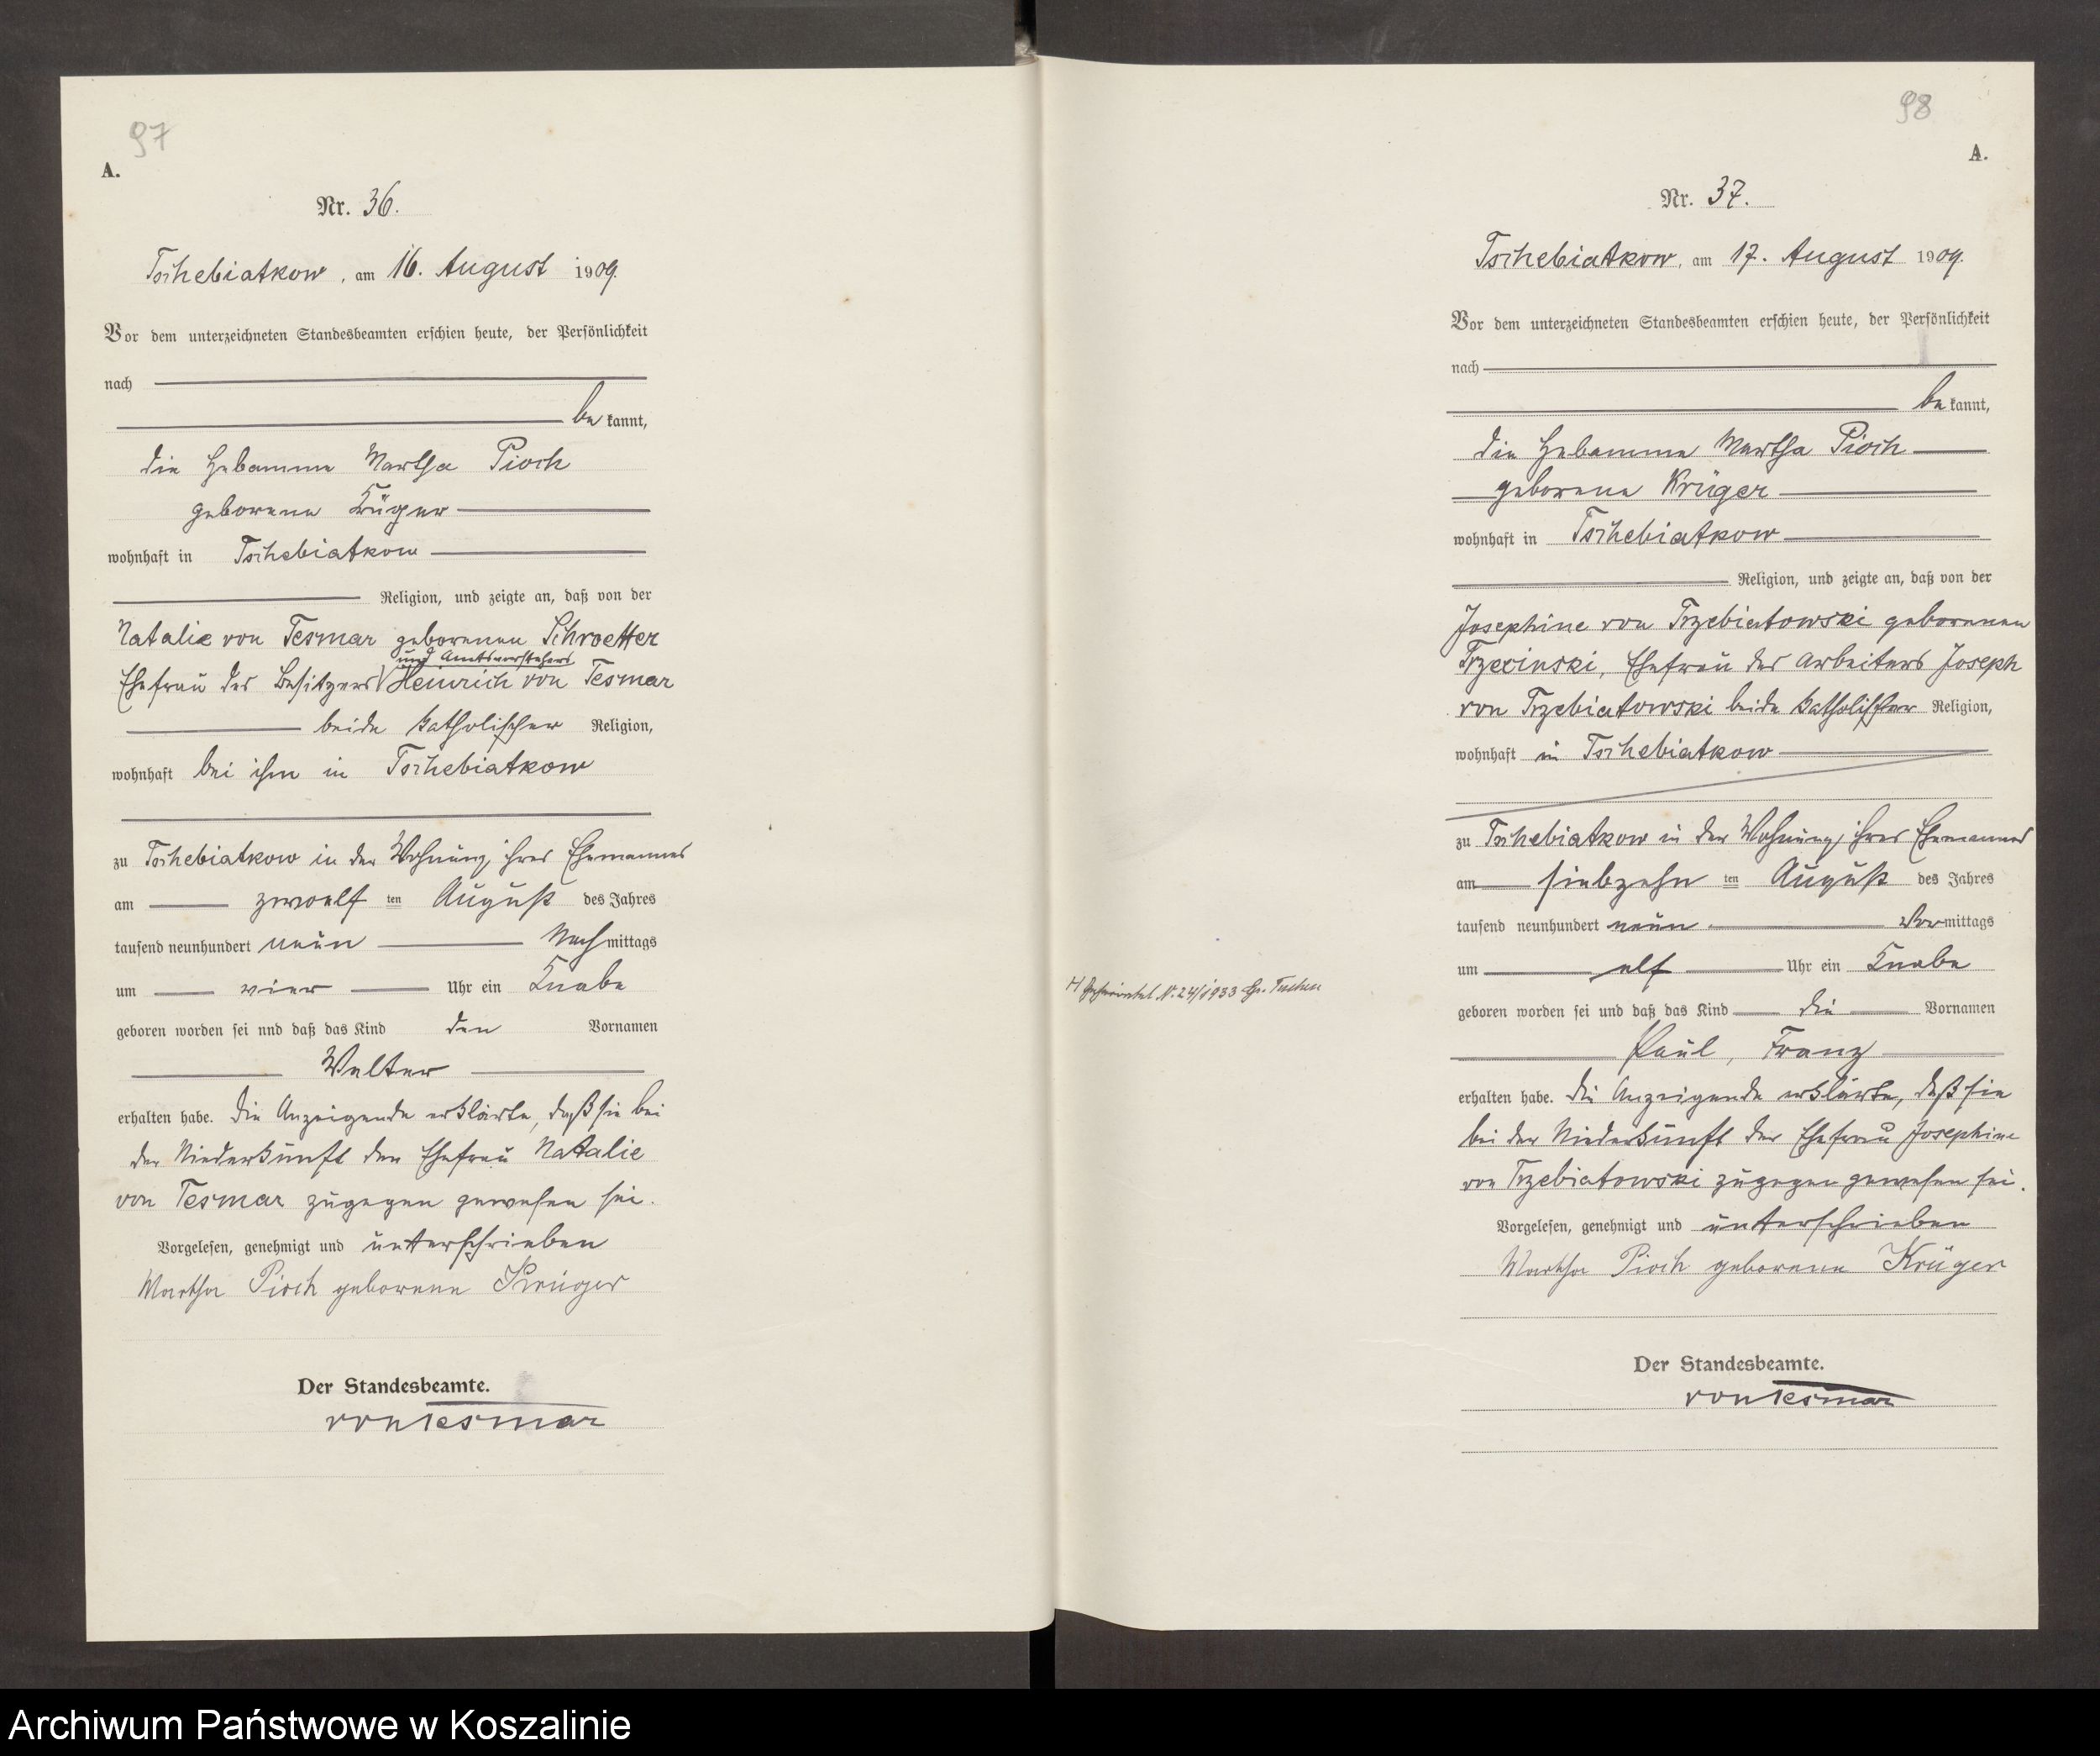 97
A.
Nr. 36.
Tschebiatkow, am 16. August 1909.
Vor dem unterzeichneten Standesbeamten erschien heute, der Persönlichkeit
nach
be kannt,
die Hebamme Martha Pioch
geborene Krüger
wohnhaft in Tschebiatkow
Religion, und zeigte an, daß von der
Natalie von Tesmar geborenen Schroetter
und Amtsvorstehers
Ehefrau des Besitzers Heinrich von Tesmar
beide katholischer Religion,
wohnhaft bei ihm in Tschebiatkow
zu Tschebiatkow in der Wohnung ihres Ehemannes
am zwoelf ten August des Jahres
tausend neunhundert neun Nach mittags
um vier Uhr ein Knabe
geboren worden sei nnd daß das Kind den Vornamen
Walter
erhalten habe. Die Anzeigende erklärte, daß sie bei
der Niederkunft der Ehefrau Natalie
von Tesmar zugegen gewesen sei.
Vorgelesen, genehmigt und unterschrieben
Martha Pioch geborene Krüger
Der Standesbeamte.
von Tesmar
98
A.
Nr. 37.
Tschebiatkow, am 17. August 1909.
Vor dem unterzeichneten Standesbeamten erschien heute, der Persönlichkeit
nach
be kannt,
die Hebamme Martha Pioch
geborene Krüger
wohnhaft in Tschebiatkow
Religion, und zeigte an, daß von der
Josephine von Trzebiatowski geborenen
Ehefrau des Arbeiters Joseph
von Trzebiatowski beide katholischer Religion,
wohnhaft in Tschebiatkow
zu Tschebiatkow in der Wohnung ihres Ehemannes
am siebzehn ten August des Jahres
tausend neunhundert neun Vor mittags
um elf Uhr ein Knabe
geboren worden sei und daß das Kind die Vornamen
Paul, Franz
erhalten habe. Die Anzeigende erklärte, daß sie
bei der Niederkunft der Ehefrau Josephine
von Trzebiatowski zugegen gewesen sei.
Vorgelesen, genehmigt und unterschrieben
Martha Pioch geborene Krüger
Der Standesbeamte.
von Tesmar
H geheiratet N. 24/1933 Gr. Tuchen
Archiwum Państwowe w Koszalinie